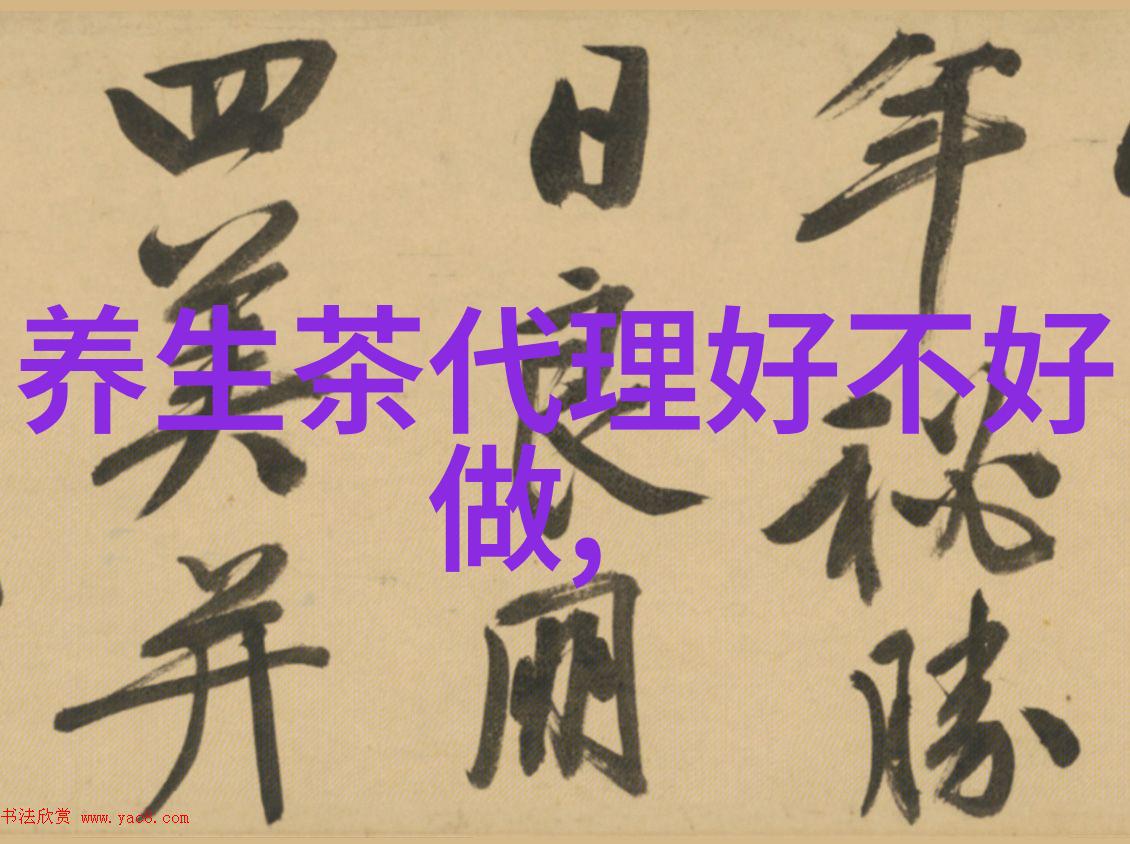 养生茶代理好不好
做,
年秘勝
日良朋
四美并
书法欣赏 www.yac8.com